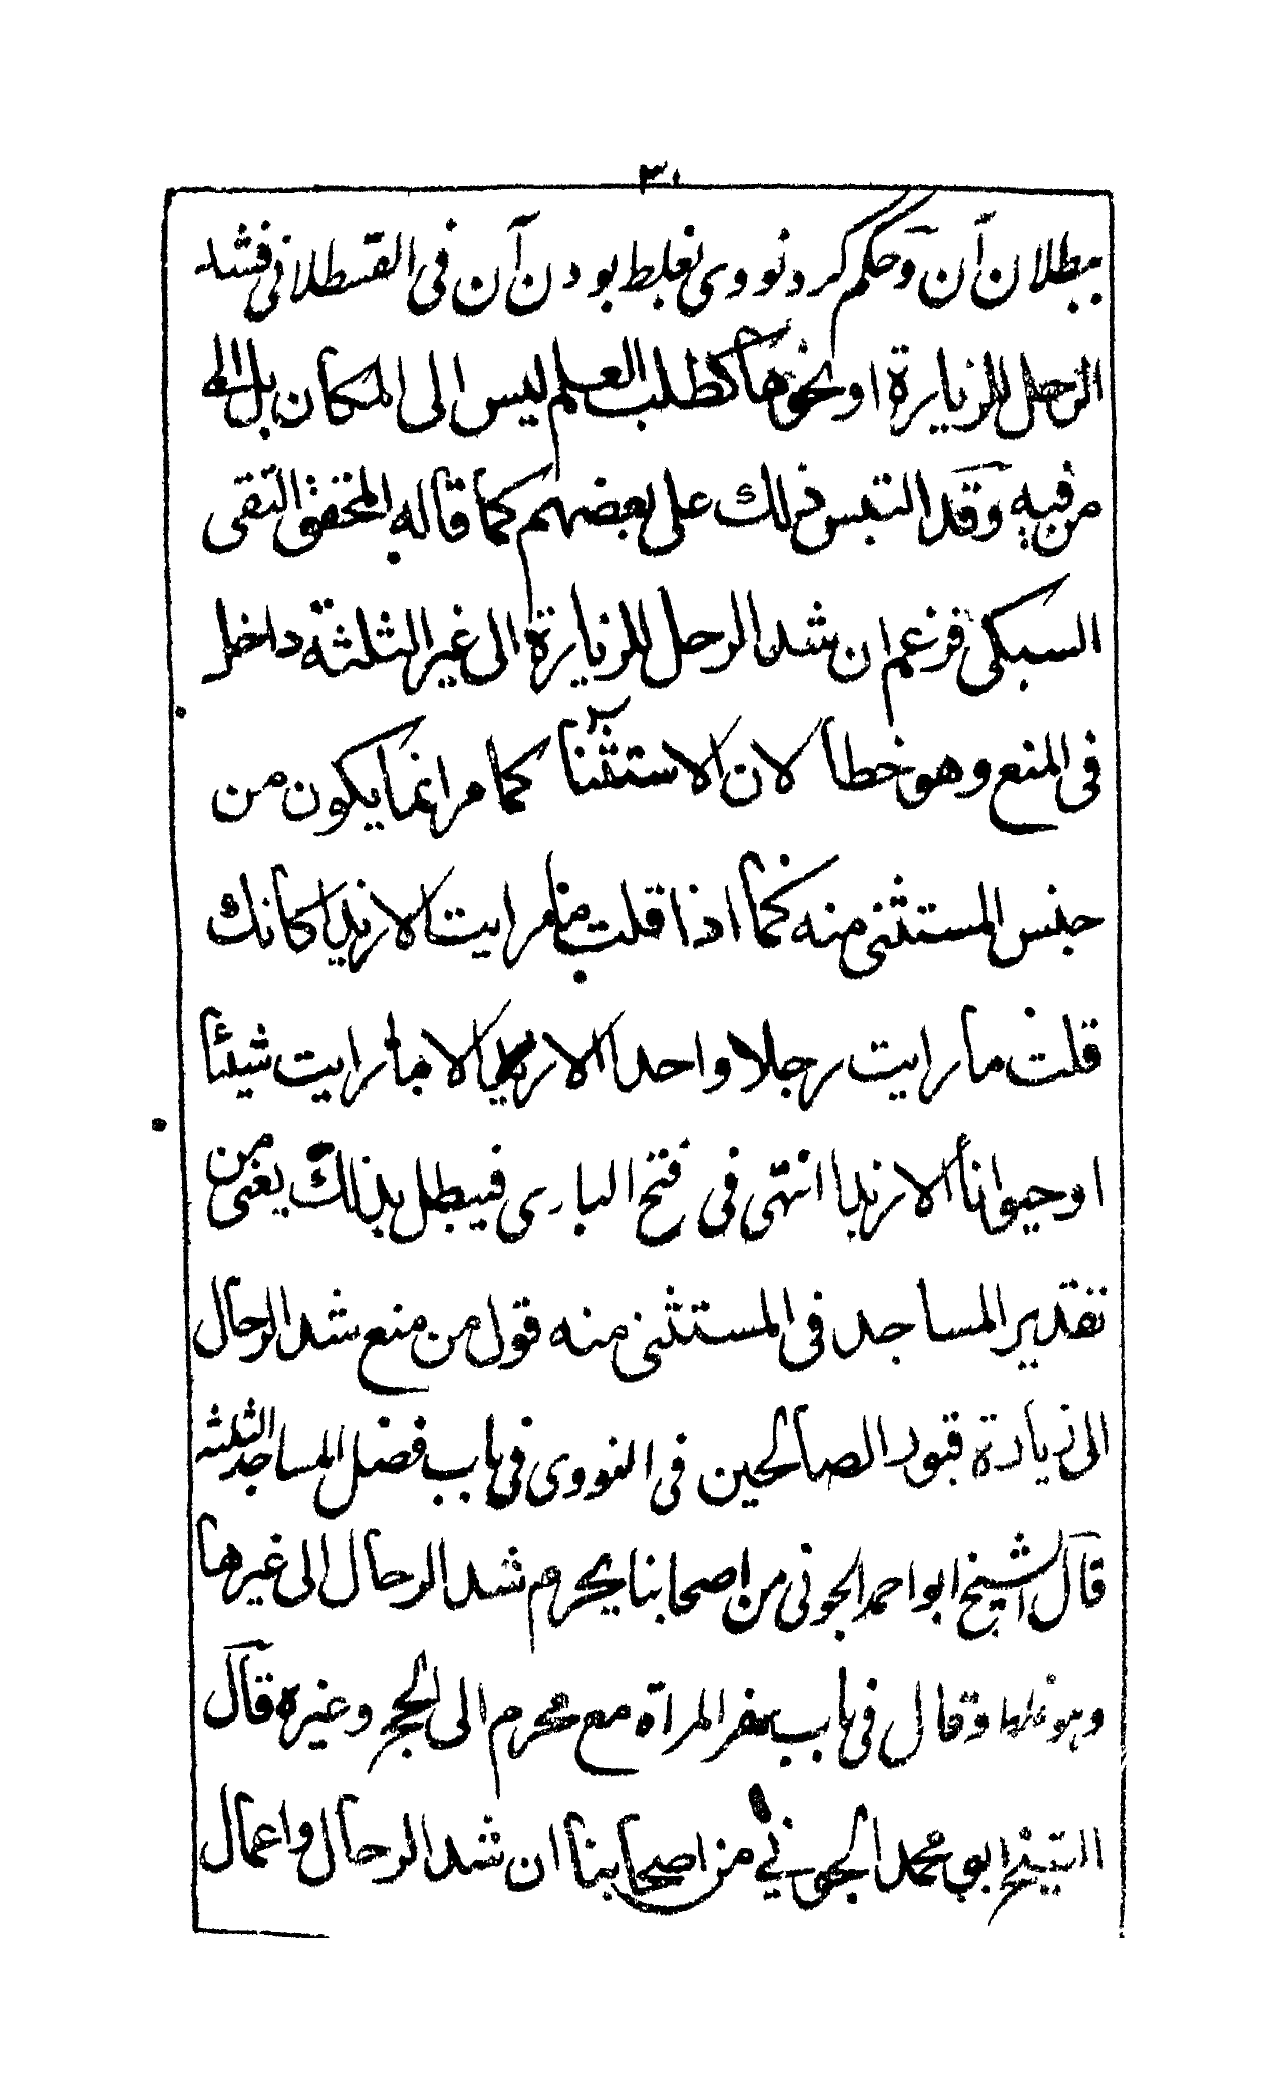 ۳۰
ببطلان آن و حکم کرد نووی بغلط بودن آن فی القسطلانی فشد
الرحل للزیارة او نحوها کطلب العلم لیس الی المکان بل الی
من فیه وقد التبس ذلک علی بعضهم کما قاله المحقق التقی
السبکی فزعم ان شد الرحل للزیارة الی غیر الثلثة داخل
فی المنع وهو خطا لان الاستثنا کما مر انما یکون من
جنس المستثنی منه کما اذا قلت ما رایت الا زیدا کانک
قلت ما رایت رجلا واحدا الا زیدا لا ما رایت شیئا
او حیوانا الا زیدا انتهی فی فتح الباری فیبطل بذلک یعنی من
تقدیر المساجد فی المستثنی منه قول من منع شد الرحال
الی زیارة قبور الصالحین فی النووی فی باب فضل المساجد الثلثه
قال الشیخ ابو احمد الجونی من اصحابنا یحرم شد الرحال الی غیرها
وهو غلط وقال فی باب سفر المراة مع محرم الی الحج وغیره قال
الشیخ ابو محمد الجوینی من اصحابنا ان شد الرحال واعمال